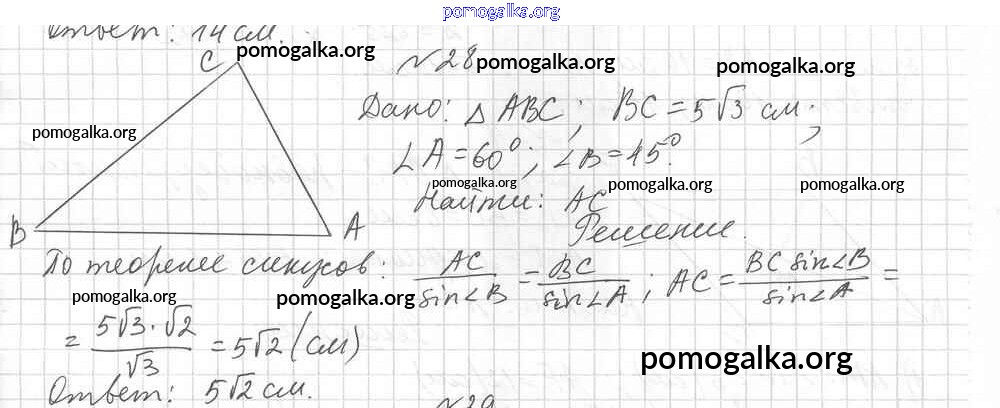 pomogalka.org
Ответ: 14 см.
C pomogalka.org
№28 pomogalka.org pomogalka.org
Дано: △ ABC; BC = 5√3 см;
pomogalka.org
∠A = 60°; ∠B = 45°.
pomogalka.org pomogalka.org pomogalka.org
Найти: AC
B A Решение.
По теореме синусов: AC/sin∠B = BC/sin∠A; AC = BC sin∠B/sin∠A =
pomogalka.org pomogalka.org
= 5√3·√2/√3 = 5√2 (см)
pomogalka.org
Ответ: 5√2 см.
№29